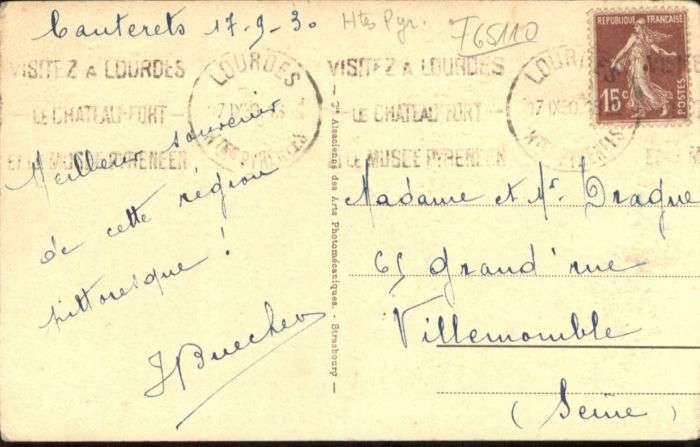 Cauterets 17-9-30
Htes Pyr.
F65110
VISITEZ A LOURDES
LE CHATEAU-FORT
ET LE MUSEE PYRENEEN
LOURDES
HTES PYRENEES
VISITEZ A LOURDES
LE CHATEAU-FORT
ET LE MUSEE PYRENEEN
LOURDES
REPUBLIQUE FRANÇAISE
15c
POSTES
Meilleur souvenir
de cette région
pittoresque !
Cie Alsacienne des Arts Photomécaniques. - Strasbourg
Madame et Mr. Dragne
65 grand'rue
Villemomble
(Seine)